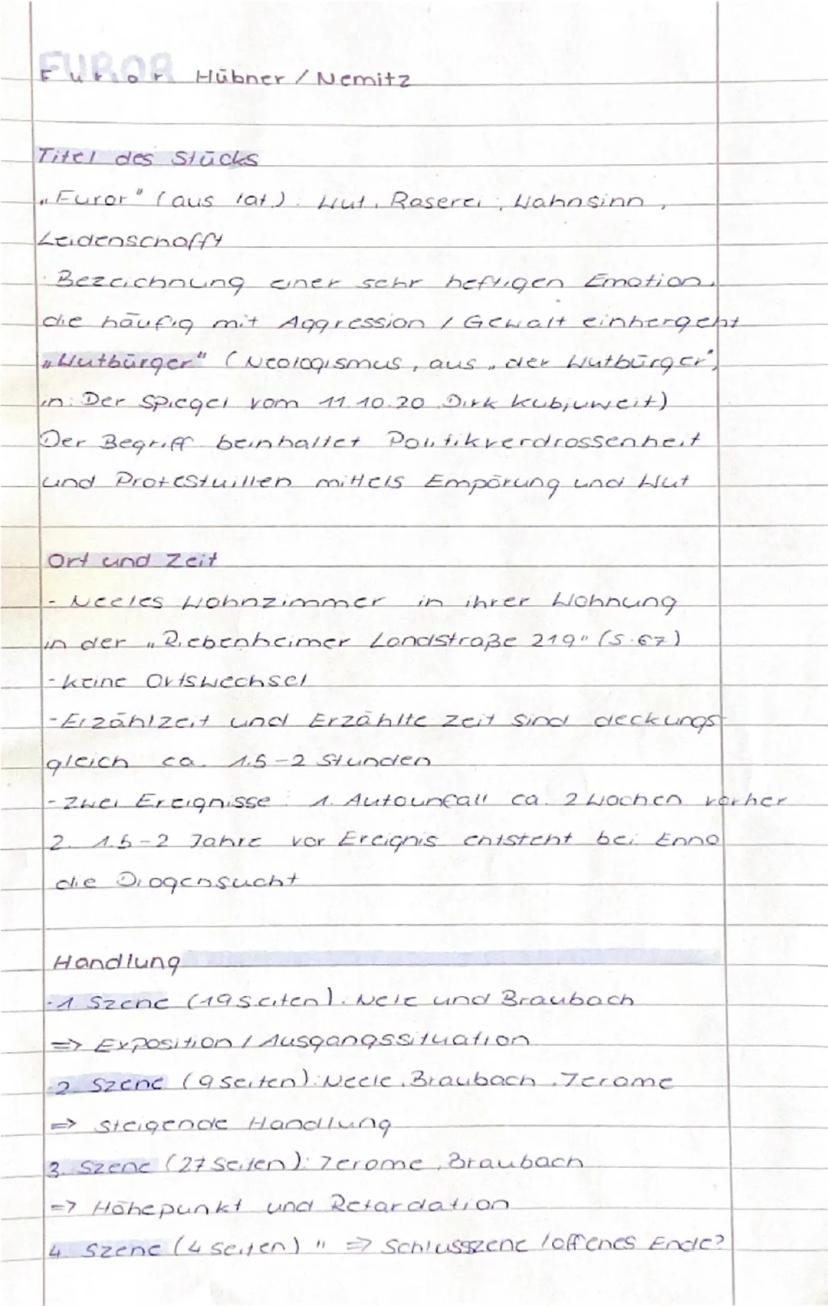 Furor Hübner / Nemitz
Titel des Stücks
„Furor" (aus lat.): Wut, Raserei, Wahnsinn,
Leidenschafft
Bezeichnung einer sehr heftigen Emotion,
die häufig mit Aggression / Gewalt einhergeht
„Wutbürger" (Neologismus, aus „der Wutbürger",
in: Der Spiegel vom 11.10.20 Dirk Kubjuweit)
Der Begriff beinhaltet Politikverdrossenheit
und Protestwillen mittels Empörung und Wut
Ort und Zeit
- Neeles Wohnzimmer in ihrer Wohnung
in der „Riebenheimer Landstraße 219" (S.67)
- keine Ortswechsel
- Erzählzeit und Erzählte Zeit sind deckungs
gleich ca. 1.5-2 Stunden
- Zwei Ereignisse: 1. Autounfall ca. 2 Wochen vorher
2. 1.5-2 Jahre vor Ereignis entsteht bei Enno
die Drogensucht
Handlung
-1 Szene (19 Seiten): Nele und Braubach
=> Exposition / Ausgangssituation
2. Szene (9 Seiten): Neele, Braubach, Jerome
=> Steigende Handlung
3. Szene (27 Seiten): Jerome, Braubach
=> Höhepunkt und Retardation
4. Szene (4 Seiten) " => Schlusszene / offenes Ende?